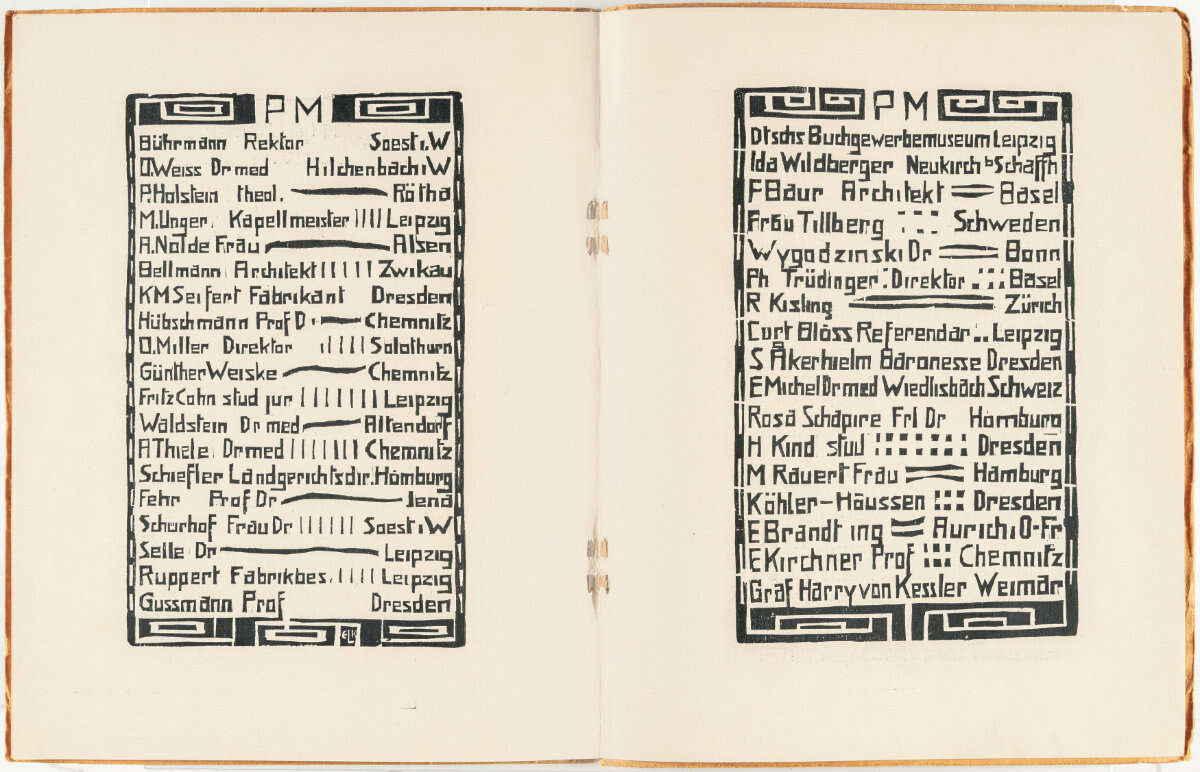 PM
Bührmann Rektor Soest i. W
O. Weiss Dr med Hilchenbach i W
P. Holstein theol. Rötha
M. Unger. Kapellmeister Leipzig
A. Nolde Frau Alsen
Bellmann Architekt Zwikau
KM Seifert Fabrikant Dresden
Hübschmann Prof D. Chemnitz
O. Miller Direktor Solothurn
Günther Weiske Chemnitz
Fritz Cohn stud jur Leipzig
Waldstein Dr med Altendorf
A Thiele Dr med Chemnitz
Schiefler Landgerichtsdir. Hamburg
Fehr Prof Dr Jena
Schurhof Frau Dr Soest i. W
Selle Dr Leipzig
Ruppert Fabrikbes. Leipzig
Gussmann Prof Dresden
ELK
PM
Dtschs Buchgewerbemuseum Leipzig
Ida Wildberger Neukirch b Schaffh
F Baur Architekt Basel
Frau Tillberg Schweden
Wygodzinski Dr Bonn
Ph Trüdinger. Direktor Basel
R Kisling Zürich
Curt Blöss Referendar.. Leipzig
S Åkerhielm Baronesse Dresden
E Michel Dr med Wiedlisbach Schweiz
Rosa Schapire Frl Dr Hamburg
H Kind stud Dresden
M Rauert Frau Hamburg
Köhler-Haussen Dresden
E Brandt ing Aurich i O-Fr
E Kirchner Prof Chemnitz
Graf Harry von Kessler Weimar